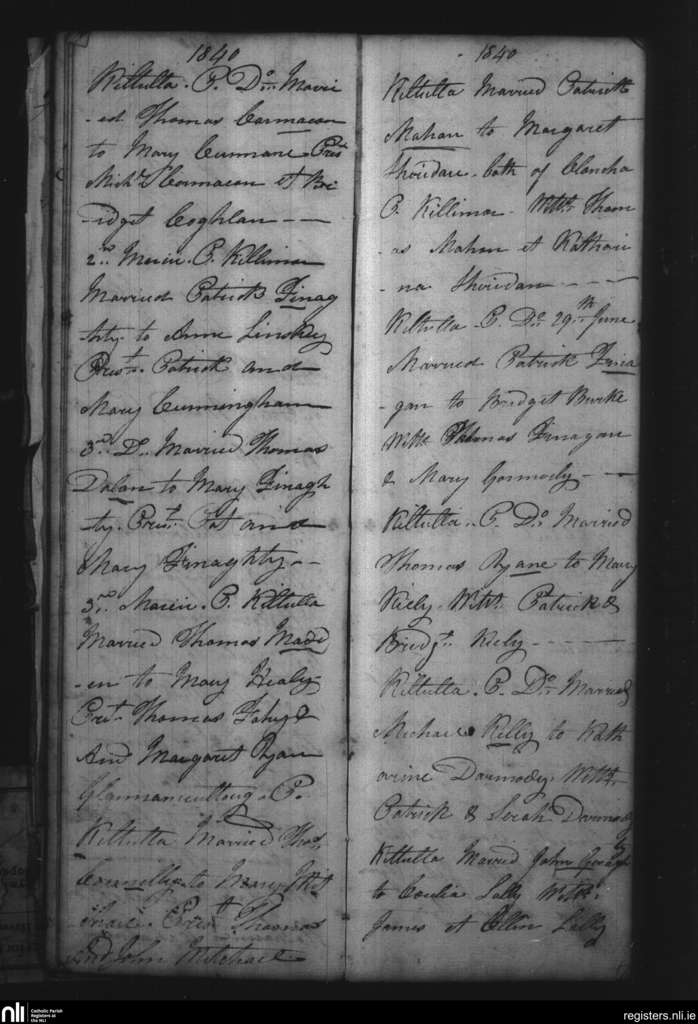 1840
Kiltulla. P. Do. Marri
-ed Thomas Cormacan
to Mary Cunnane Prest
Michl. Cormacan et Br
-idget Coghlan - -
2nd. P. Killimor
Married Patrick Finag
-hty to Anne Linskey
Prest. Patrick and
Mary Cunningham
3rd. Do. Married Thomas
Dolan to Mary Finagh
-ty. Prest. Pat and
Mary Finaghty - -
3rd. P. Kiltulla
Married Thomas Madd
-en to Mary Healy
Prest. Thomas Fahy &
And Margaret Ryan
P.
Kiltulla Married Thos.
Connolly to Mary Mit
Prest. Thomas
And John Mitchael
1840
Kiltulla Married Patrick
Mahon to Margaret
Sheridan - both of
P. Killimor - Witts. Thom
-as Mahon et Kathari
-na Sheridan - - - -
Kiltulla - P. Do. 29th June
Married Patrick Fina
-gan to Bridget Burke
Witts. Thomas Finagan
& Mary Gormody - -
Kiltulla. P. Do. Married
Thomas Ryane to Mary
Kiely. Witts. Patrick &
Bridgt. Kiely - - - -
Kiltulla. P. Do. Married
Michael Killy to Kath
-arine Darmody. Witts.
Patrick & Sarah Darmody
Kiltulla Married John
to Cecilia Lally Witts.
James et Ellin Lally
nli
Catholic Parish
Registers at
the NLI
registers.nli.ie